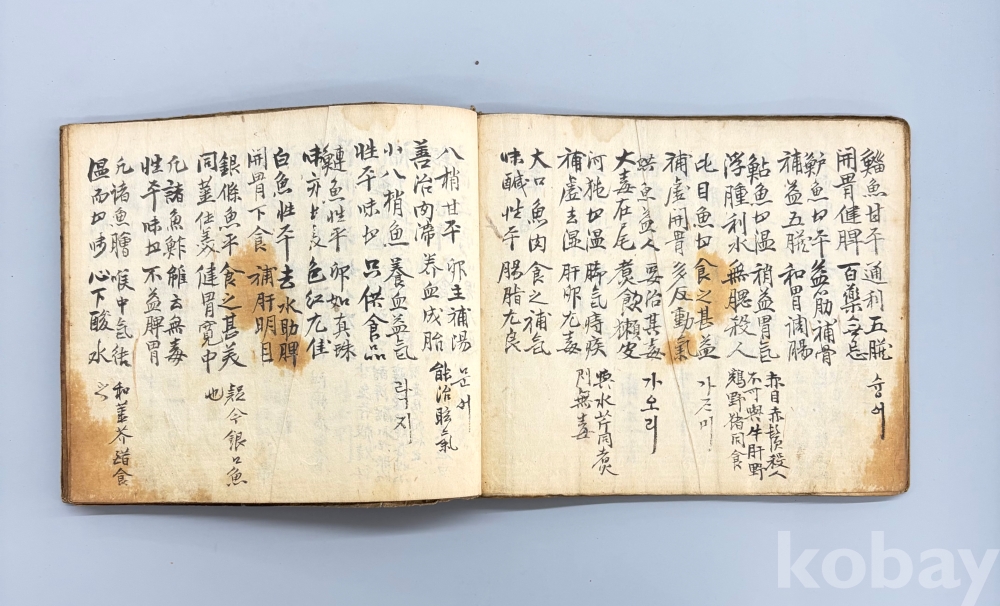 鯔魚甘平通利五臟
開胃健脾百藥無忌
숭어
鱸魚甘平益筋補骨
補益五臟和胃調腸
鮎魚甘溫稍益胃氣
浮腫利水無腮殺人
赤目赤鬚殺人
不可與牛肝野
鷄野猪同食
比目魚甘食之甚益
補虛開胃多反動氣
가즈미
洪魚益人要治其毒
大毒在尾煮飮獺皮
가오리
河魨甘溫脚氣痔疾
補虛去濕肝卵尤毒
與水芹同煮
則無毒
大口魚肉食之補氣
味鹹性平腸脂尤良
八梢甘平卵主補陽
善治肉滯養血成胎
문어
能治眩氣
小八梢魚養血益氣
性平味甘只供食品
락지
鰱魚性平卵如真珠
味亦甘美色紅尤佳
白魚性平去水助脾
開胃下食補肝明目
銀條魚平食之甚美
同薑作羹健胃寬中
疑今銀口魚
也
凡諸魚鮓雖云無毒
性平味甘不益脾胃
凡諸魚膾喉中氣結
溫而甘味心下酸水
和薑芥醋食
之
kobay